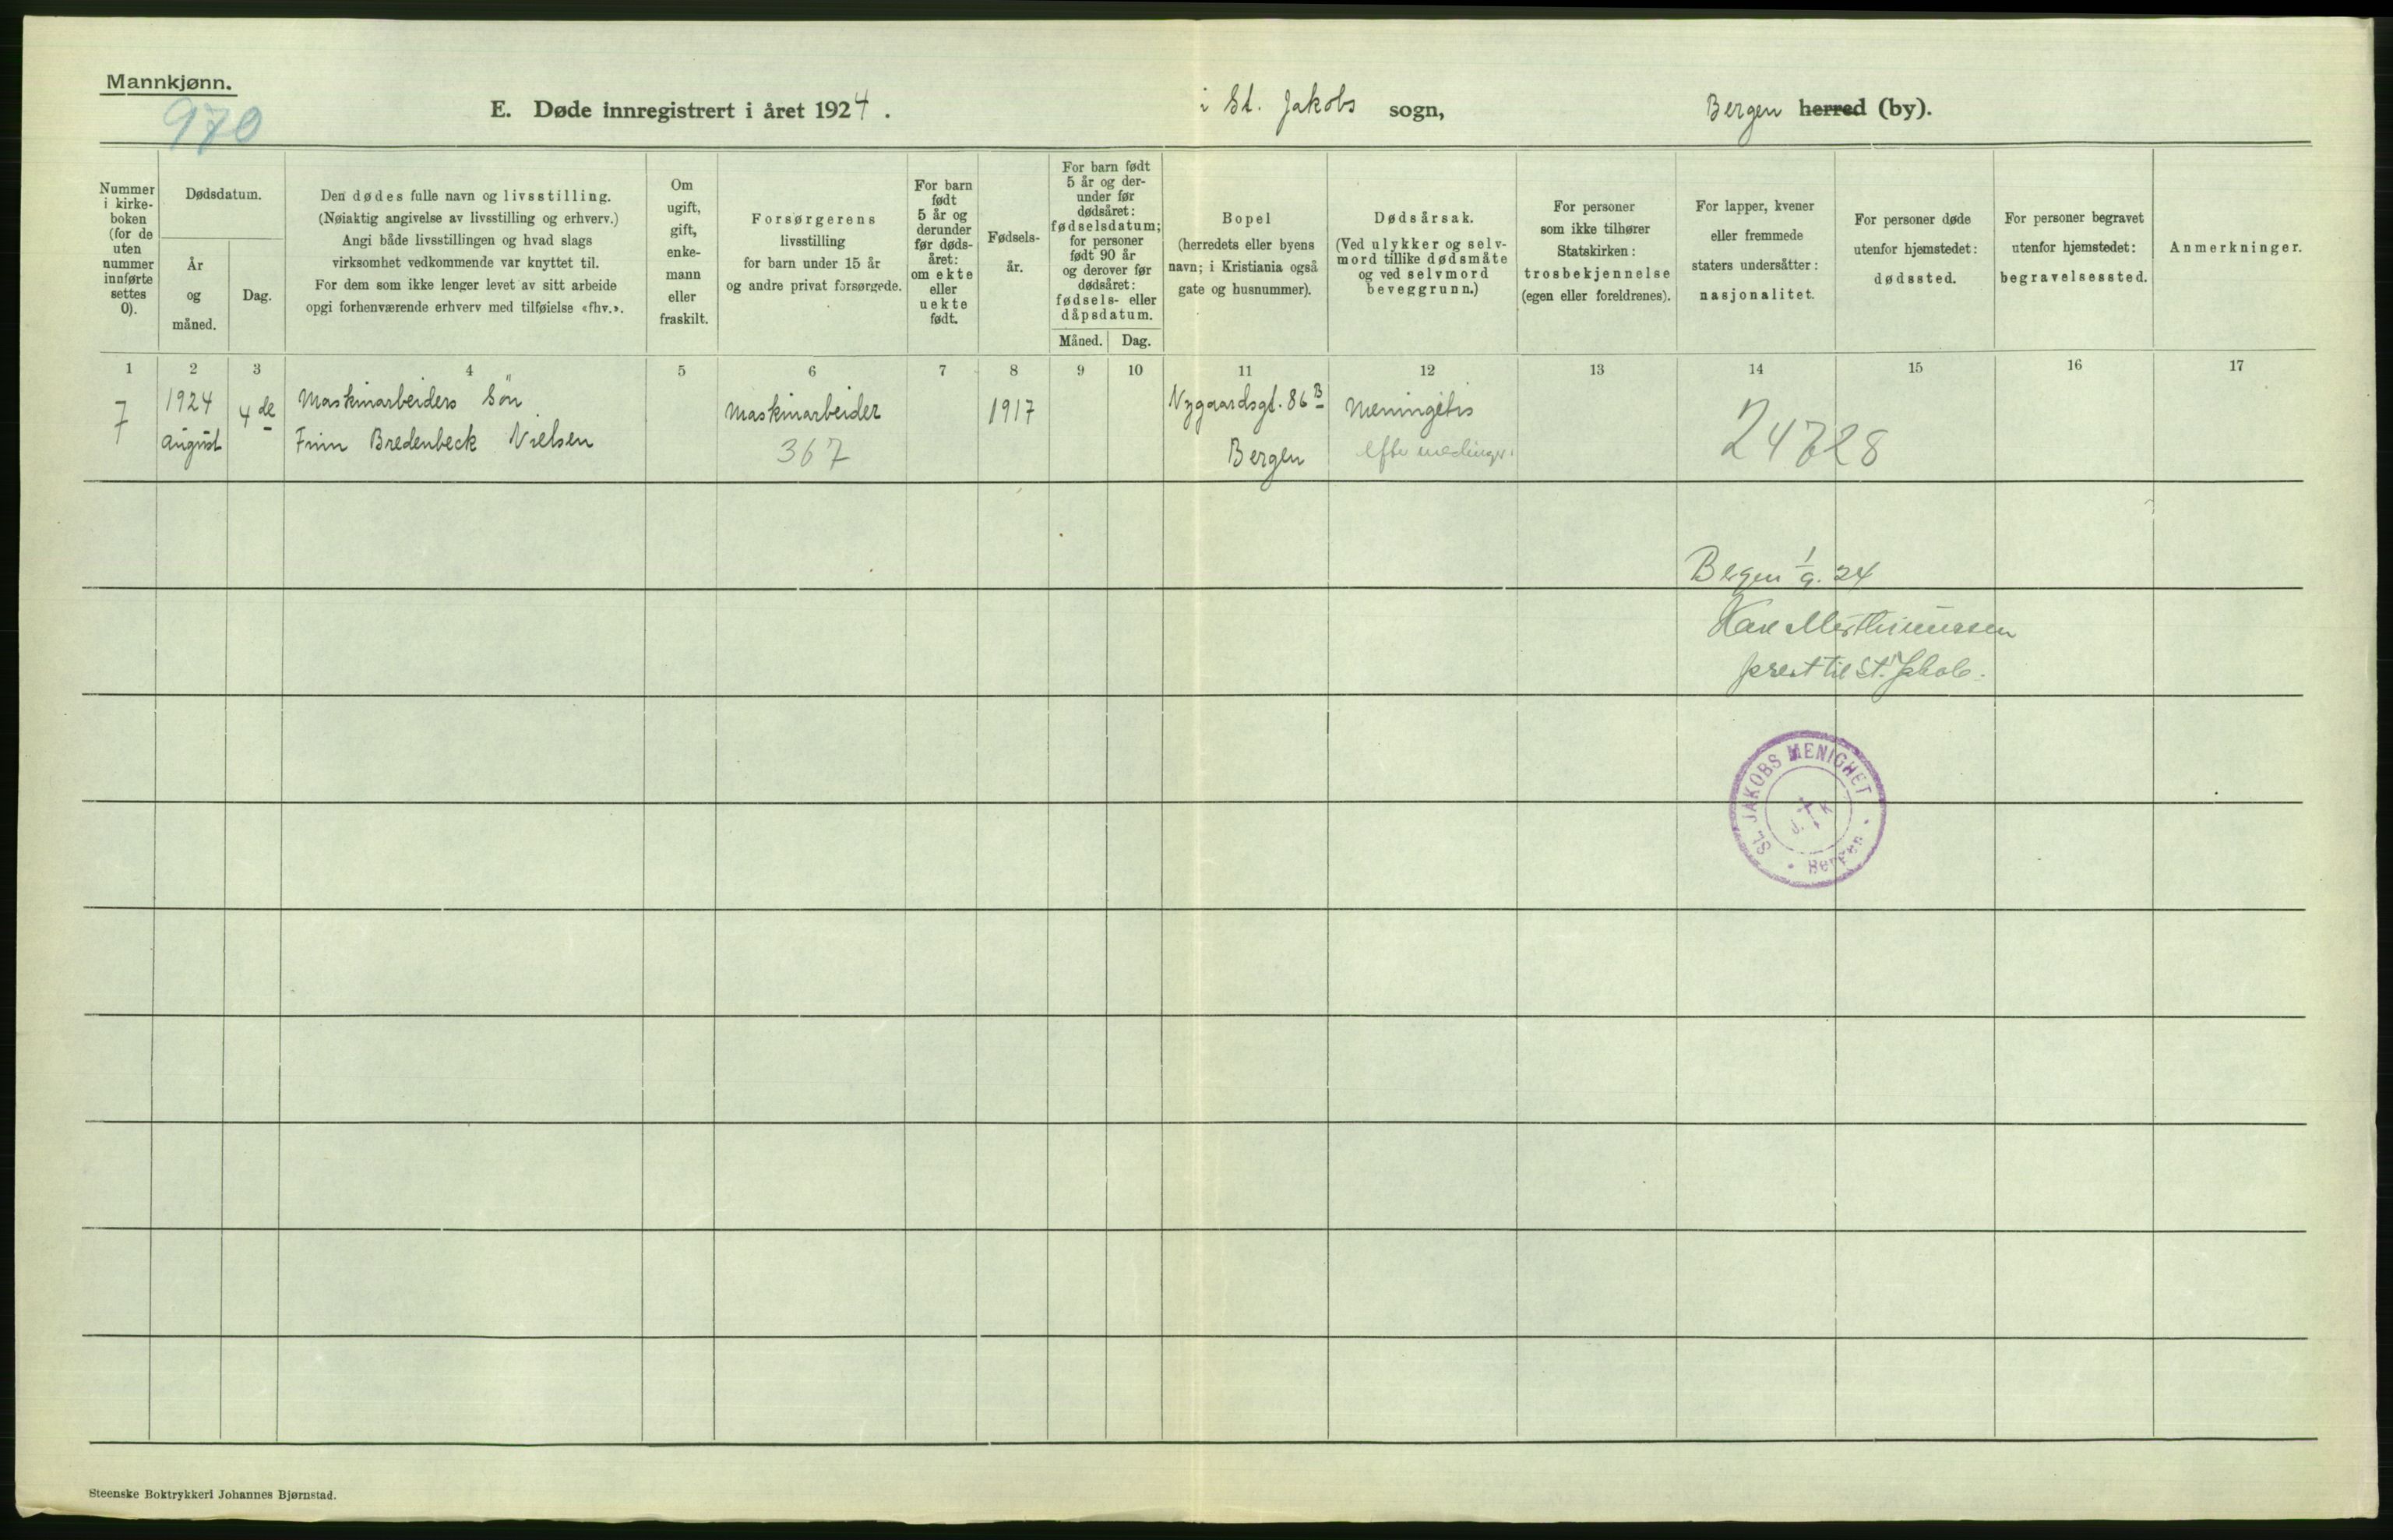 Mannkjønn.
970
E. Døde innregistrert i året 1924.
i St. Jakobs sogn,
Bergen herred (by).
Nummer
i kirke-
boken
(for de
uten
nummer
innførte
settes
0).
Dødsdatum.
År
og
måned.
Dag.
Den dødes fulle navn og livsstilling.
(Nøiaktig angivelse av livsstilling og erhverv.)
Angi både livsstillingen og hvad slags
virksomhet vedkommende var knyttet til.
For dem som ikke lenger levet av sitt arbeide
opgi forhenværende erhverv med tilføielse «fhv.».
Om
ugift,
gift,
enke-
mann
eller
fraskilt.
Forsørgerens
livsstilling
for barn under 15 år
og andre privat forsørgede.
For barn
født
5 år og
derunder
før døds-
året:
om ekte
eller
uekte
født.
Fødsels-
år.
For barn født
5 år og der-
under før
dødsåret:
fødselsdatum;
for personer
født 90 år
og derover før
dødsåret:
fødsels- eller
dåpsdatum.
Måned.
Dag.
Bopel
(herredets eller byens
navn; i Kristiania også
gate og husnummer).
Dødsårsak.
(Ved ulykker og selv-
mord tillike dødsmåte
og ved selvmord
beveggrunn.)
For personer
som ikke tilhører
Statskirken:
trosbekjennelse
(egen eller foreldrenes).
For lapper, kvener
eller fremmede
staters undersåtter:
nasjonalitet.
For personer døde
utenfor hjemstedet:
dødssted.
For personer begravet
utenfor hjemstedet:
begravelsessted.
Anmerkninger.
1 2 3 4 5 6 7 8 9 10 11 12 13 14 15 16 17
7
1924
august
4de
Maskinarbeiders Sön
Finn Bredenbeck Nielsen
Maskinarbeider
367
1917
Nygaardsgt. 86B
Bergen
Meningitis
24728
Bergen 1/9. 24
prest til St. Jakob.
St. JAKOBS MENIGHET
J. K
Bergen
Steenske Boktrykkeri Johannes Bjørnstad.